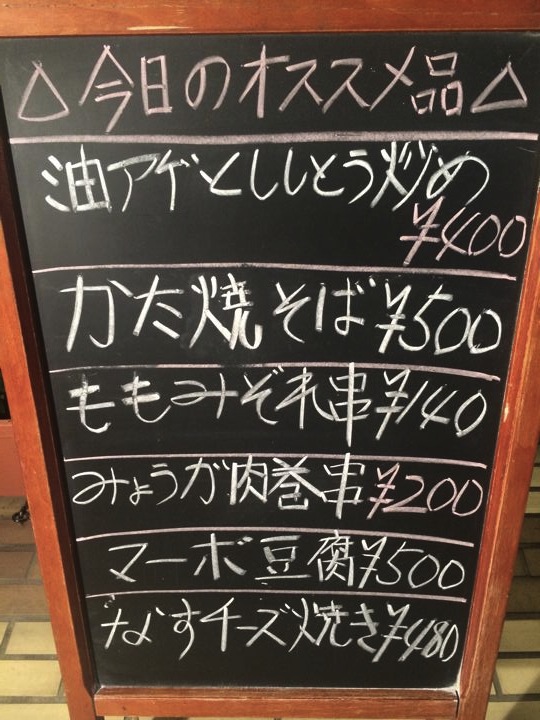 △今日のオススメ品△
油アゲとししとう炒め
¥400
かた焼そば¥500
ももみぞれ串¥140
みょうが肉巻串¥200
マーボ豆腐¥500
なすチーズ焼き¥480